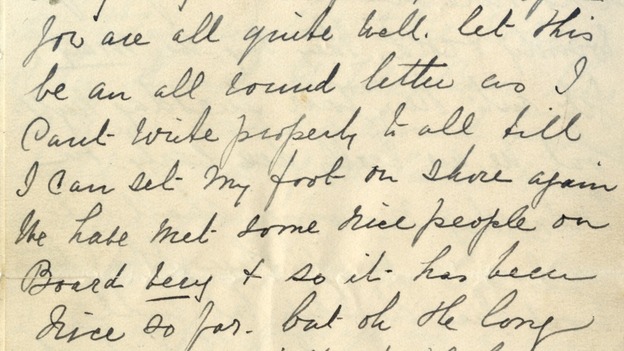 you are all quite well. let this
be an all round letter as I
Cant write properly to all till
I can set my foot on shore again
We have met some nice people on
Board & so it has been
nice so far. but oh the long